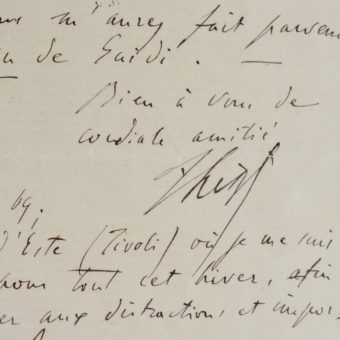 m'aurez fait parven
de Guidi. —
Bien à vous de
cordiale amitié
FLiszt
69;
d'Este (Tivoli) où je me suis
pour tout cet hiver, afin
er aux distractions, et impor